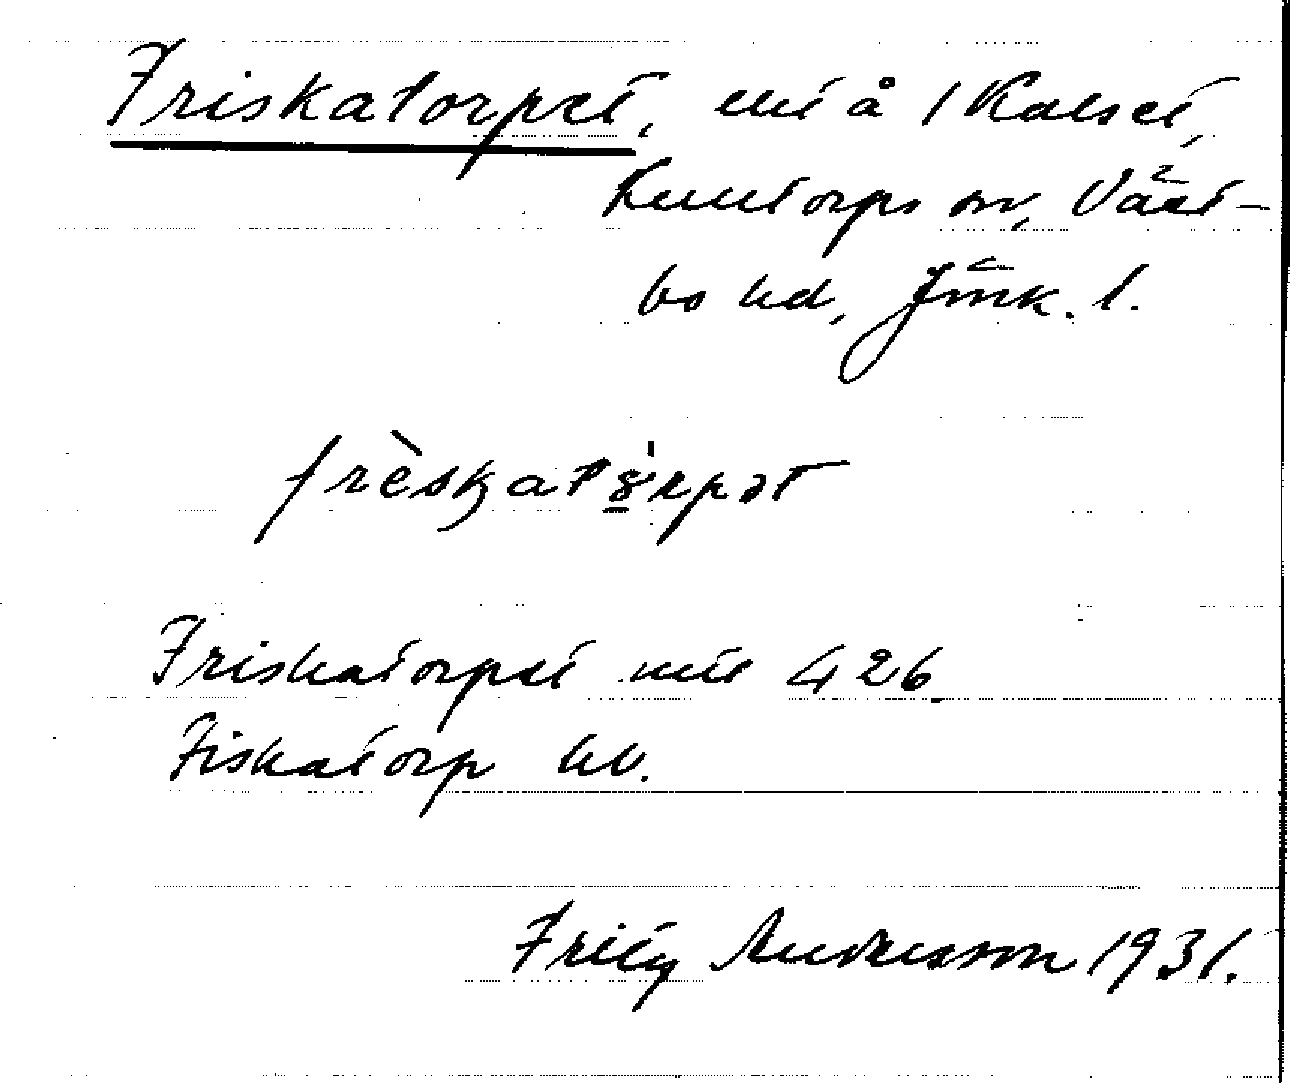 Friskatorpet, utt å / Kalset,
Kulltorps sn, Väst-
bo hd, Jönk. l.
frèskatɷ̀rpət
Friskatorpet utt 426.
Fiskatorp hb.
Frity Andersson 1931.